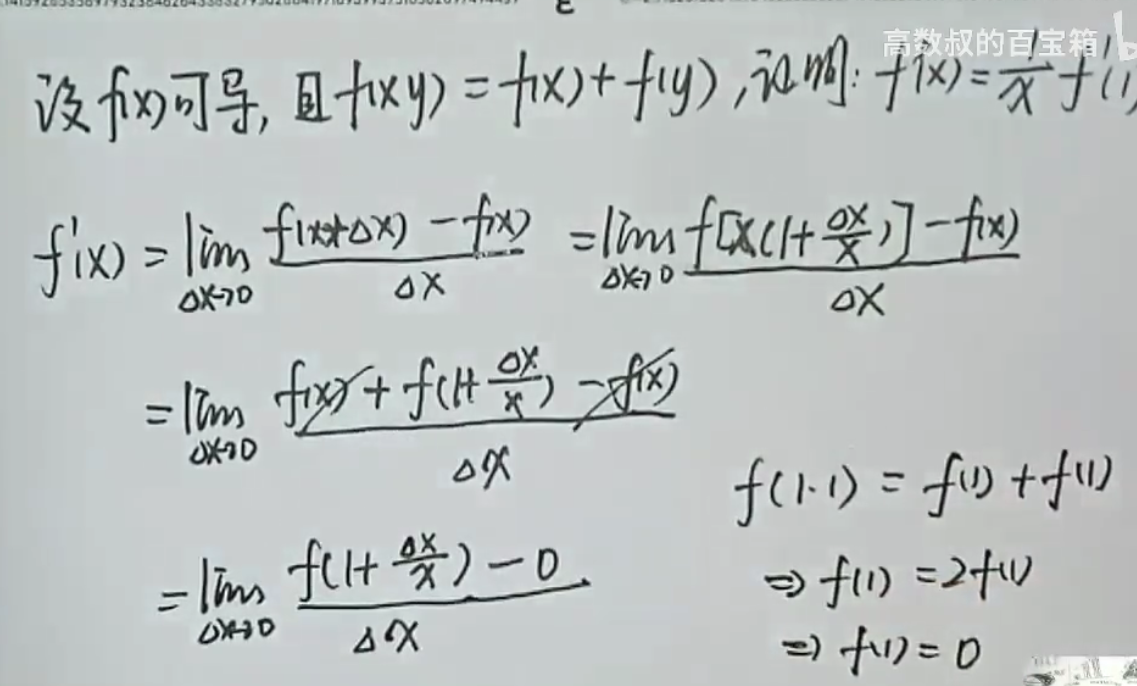 高数叔的百宝箱
设f(x)可导, 且f(xy) = f(x) + f(y), 证明: f'(x) = 1/x f'(1)
f'(x) = lim Δx→0 (f(x+Δx) - f(x))/Δx = lim Δx→0 (f[x(1+Δx/x)] - f(x))/Δx
= lim Δx→0 (f(x) + f(1+Δx/x) - f(x))/Δx
= lim Δx→0 (f(1+Δx/x) - 0)/Δx
f(1·1) = f(1) + f(1)
⇒ f(1) = 2f(1)
⇒ f(1) = 0